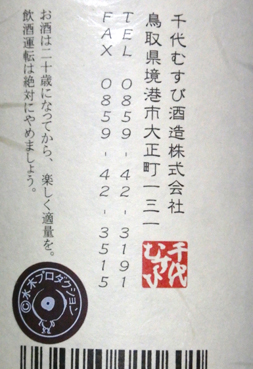 千代むすび酒造株式会社
鳥取県境港市大正町一三一
TEL 0859-42-3191
FAX 0859-42-3515
お酒は二十歳になってから、楽しく適量を。
飲酒運転は絶対にやめましょう。
千代むすび
©水木プロダクション